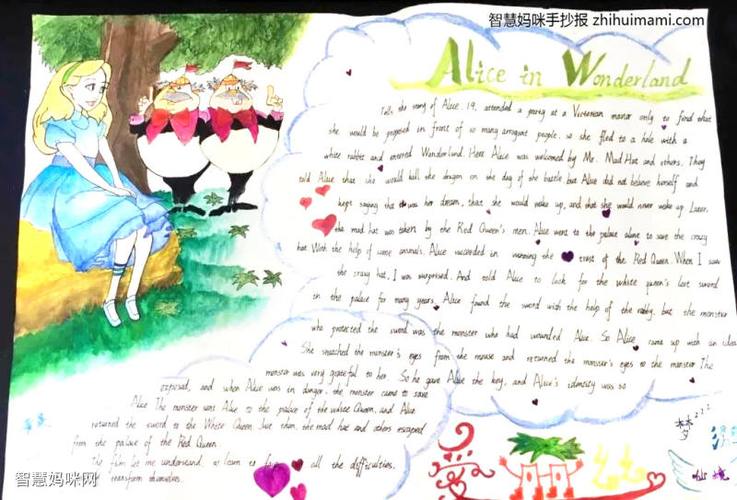 智慧妈咪手抄报 zhihuimami.com
Alice in Wonderland
Tells the story of Alice, 19, attended a party at a Victorian manor only to find that
she would be proposed in front of so many arrogant people, so she fled to a hole with a
white rabbit and entered Wonderland. Here Alice was welcomed by Mr. Mad Hat and others. They
told Alice that she would kill the dragon on the day of the battle but Alice did not believe herself and
kept saying that was her dream, that she would wake up, and that she would never wake up Later.
the mad hat was taken by the Red Queen's men. Alice went to the palace alone to save the crazy
hat With the help of some animals Alice succeeded in winning the trust of the Red Queen. When I saw
the crazy hat, I was surprised. And told Alice to look for the white queen's lost sword
in the palace for many years, Alice found the sword with the help of the rabbit, but the monster
who protected the sword was the monster who had wounded Alice. So Alice came up with an idea
She snatched the monster's eyes from the mouse and returned the monster's eyes to the monster The
monster was very grateful to her. So he gave Alice the key, and Alice's identity was so
exposed, and when Alice was in danger, the monster came to save
Alice The monster was Alice to the palace of the white Queen, and Alice
returned the sword to the White Queen then the mad hat and others escaped
from the palace of the Red Queen
The film let me understand, to learn to all the difficulties.
transform ourselves.
智慧妈咪网
梦 zzz
仙境